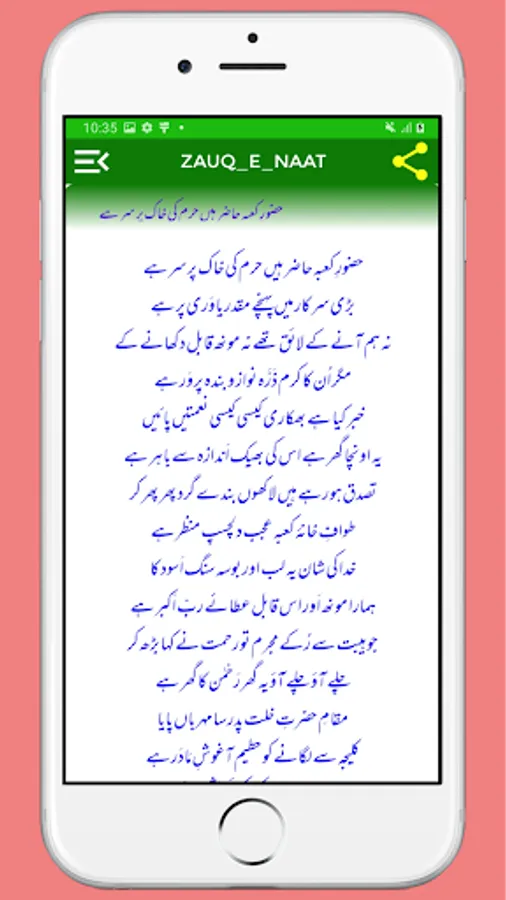 10:35
ZAUQ_E_NAAT
حضورِ کعبہ حاضر ہیں حرم کی خاک پر سر ہے
حضورِ کعبہ حاضر ہیں حرم کی خاک پر سر ہے
بڑی سرکار میں پہنچے مقدر یاوَری پر ہے
نہ ہم آنے کے لائق تھے نہ مونھ قابل دکھانے کے
مگر اُن کا کرم ذَرَّہ نواز و بندہ پروَر ہے
خبر کیا ہے بھکاری کیسی کیسی نعمتیں پائیں
یہ اونچا گھر ہے اس کی بھیک اَندازہ سے باہر ہے
تصدق ہورہے ہیں لاکھوں بندے گرد پھر پھر کر
طوافِ خانۂ کعبہ عجب دلچسپ منظر ہے
خدا کی شان یہ لب اور بوسہ سنگ اَسود کا
ہمارا مونھ اَور اس قابل عطائے ربّ اَکبر ہے
جو ہیبت سے رُکے مجرم تو رحمت نے کہا بڑھ کر
چلے آؤ چلے آؤ یہ گھر رَحمٰن کا گھر ہے
مقامِ حضرتِ خلت پدر سا مہرباں پایا
کلیجہ سے لگانے کو حطیم آغوشِ مادَر ہے